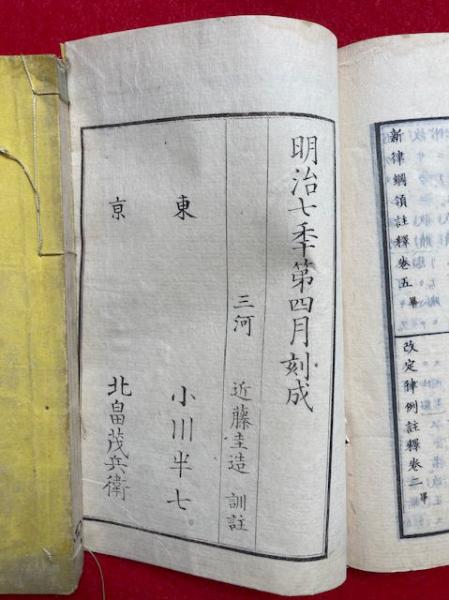 新律綱領註釋卷五畢
改定律例註釋卷二畢
明治七季第四月刻成
三河 近藤圭造 訓註
東 小川半七
亰 北畠茂兵衛